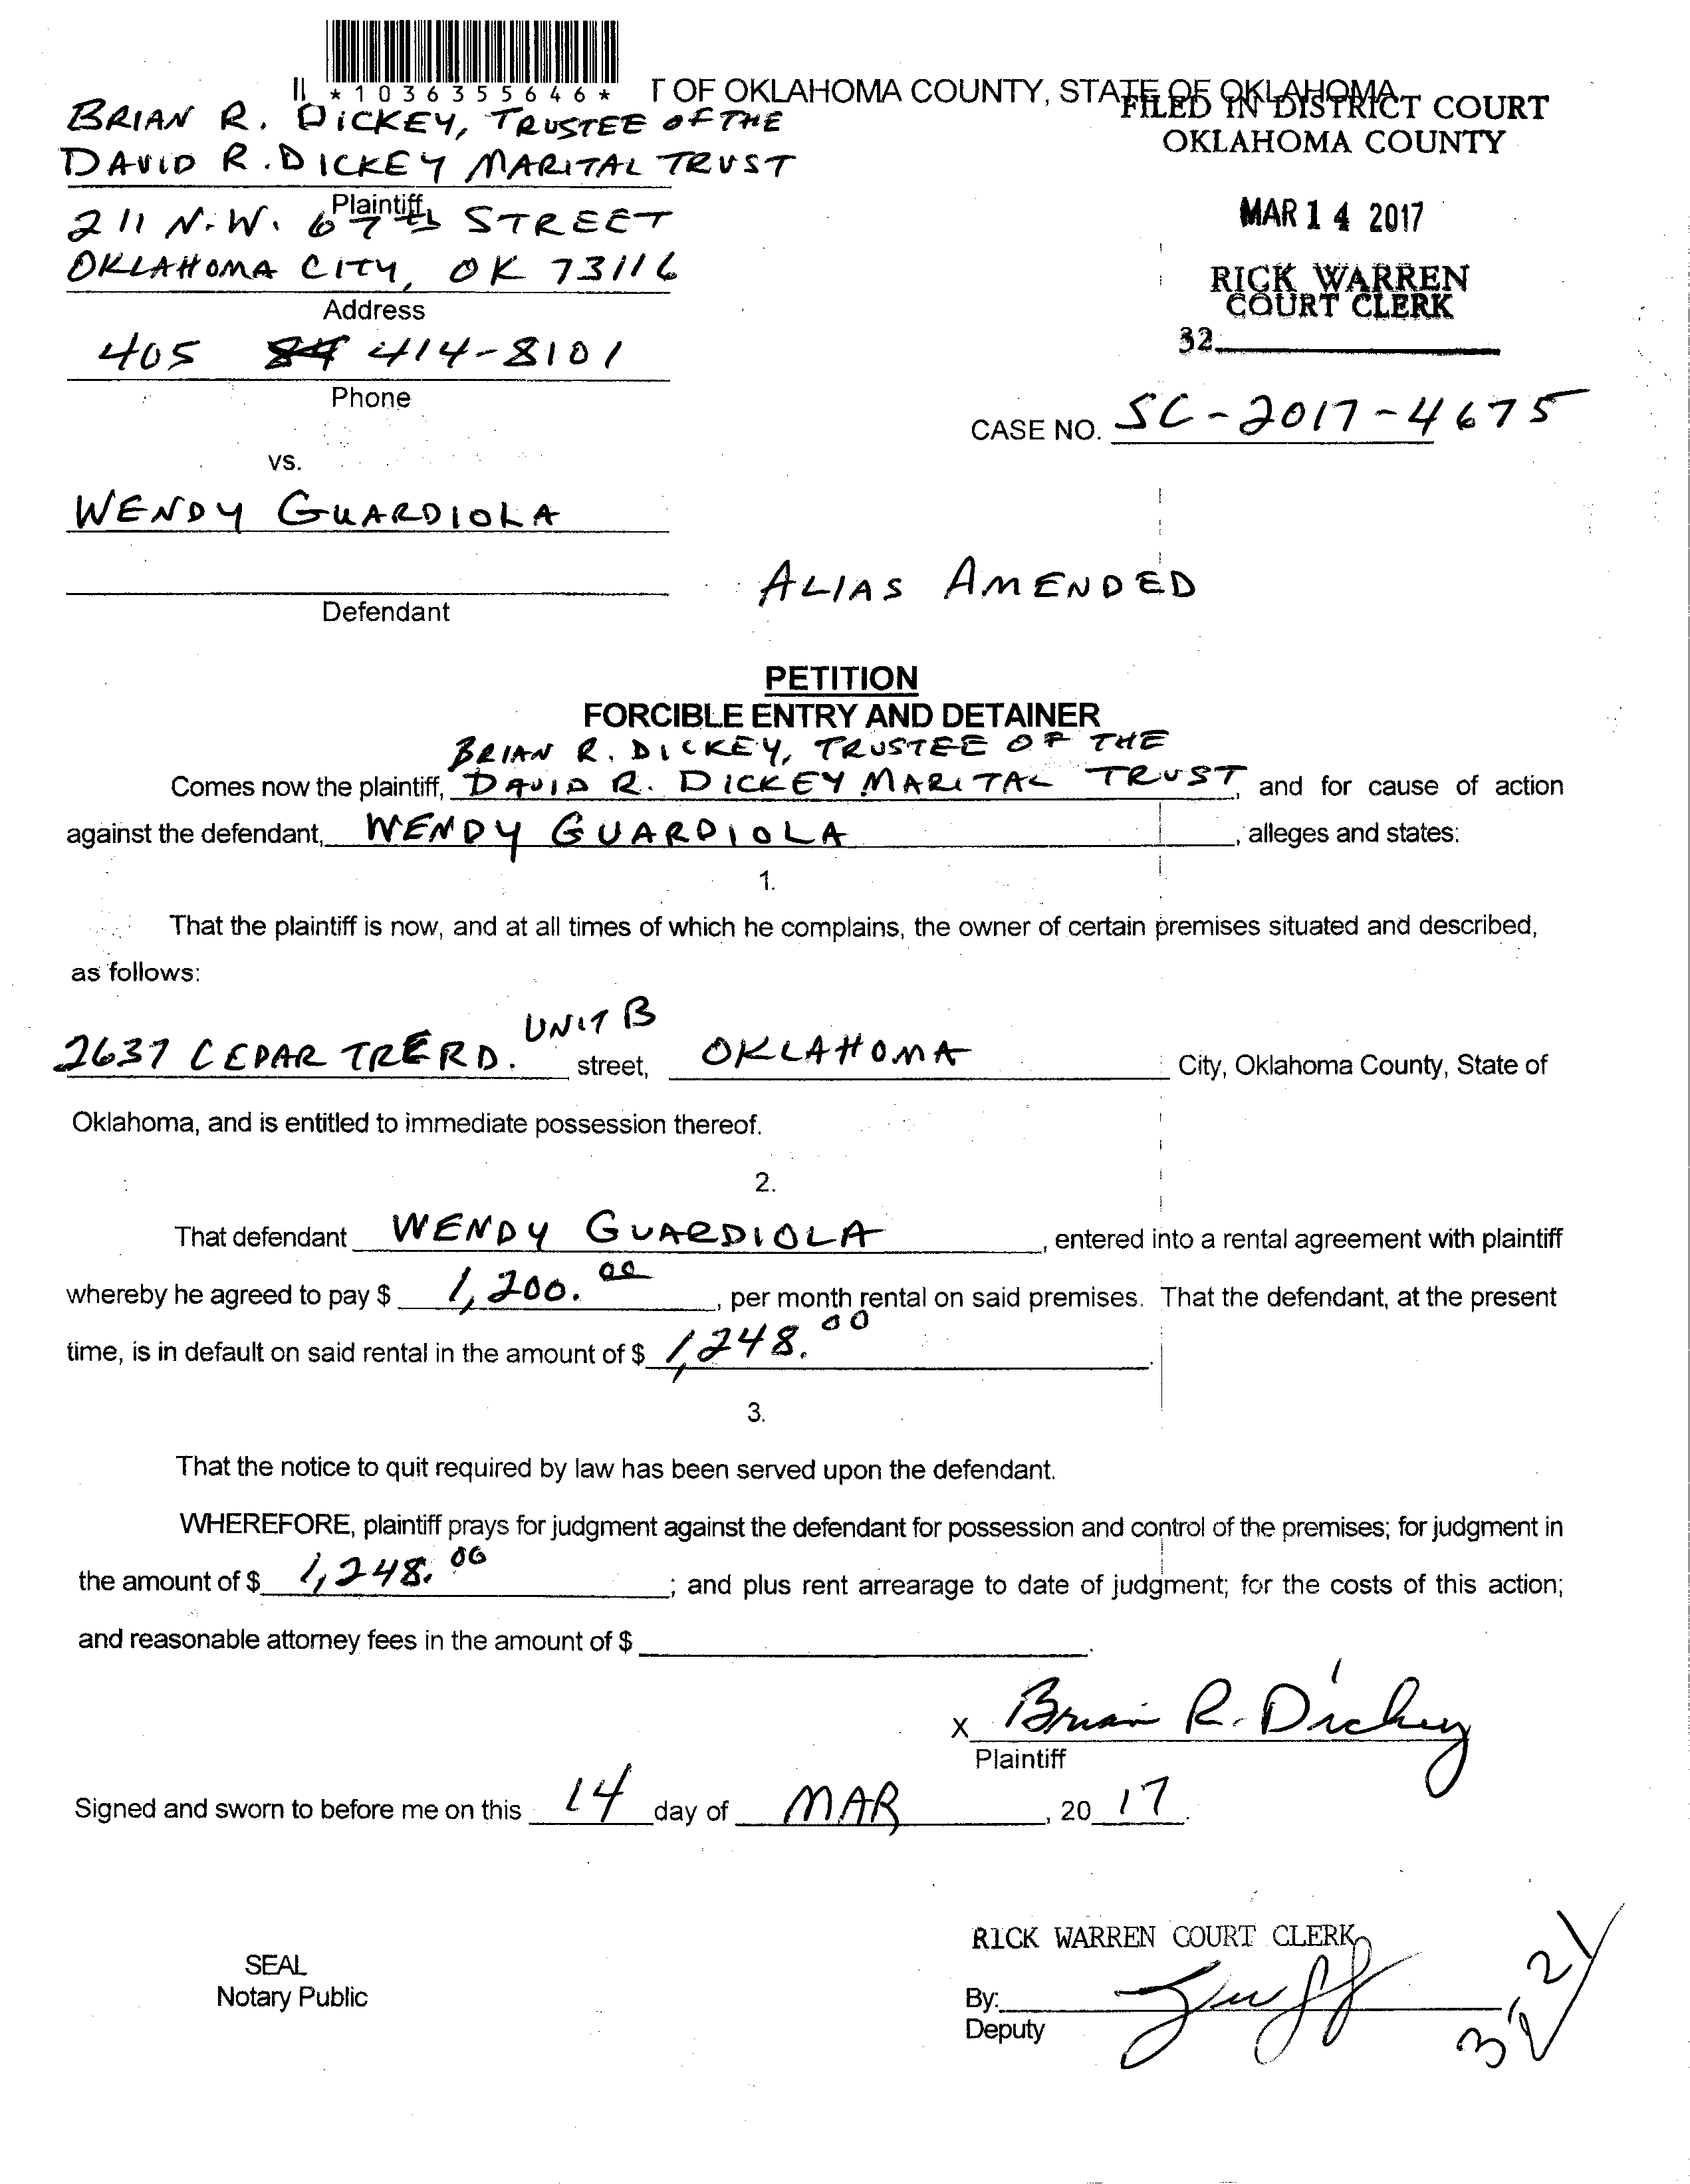 *1036355646*
T OF OKLAHOMA COUNTY, STATE OF OKLAHOMA
FILED IN DISTRICT COURT
OKLAHOMA COUNTY
MAR 14 2017
RICK WARREN
COURT CLERK
32
BRIAN R. DICKEY, TRUSTEE OF THE
DAVID R. DICKEY MARITAL TRUST
Plaintiff
211 N.W. 67th STREET
OKLAHOMA CITY, OK 73116
Address
405 414-8101
Phone
CASE NO. SC-2017-4675
vs.
WENDY GUARDIOLA
Defendant
ALIAS AMENDED
PETITION
FORCIBLE ENTRY AND DETAINER
BRIAN R. DICKEY, TRUSTEE OF THE
Comes now the plaintiff, DAVID R. DICKEY MARITAL TRUST, and for cause of action
against the defendant, WENDY GUARDIOLA, alleges and states:
1.
That the plaintiff is now, and at all times of which he complains, the owner of certain premises situated and described,
as follows:
UNIT B
2637 CEDAR TRE RD. street, OKLAHOMA City, Oklahoma County, State of
Oklahoma, and is entitled to immediate possession thereof.
2.
That defendant WENDY GUARDIOLA, entered into a rental agreement with plaintiff
whereby he agreed to pay $ 1,200.00, per month rental on said premises. That the defendant, at the present
time, is in default on said rental in the amount of $ 1,248.00.
3.
That the notice to quit required by law has been served upon the defendant.
WHEREFORE, plaintiff prays for judgment against the defendant for possession and control of the premises; for judgment in
the amount of $ 1,248.00; and plus rent arrearage to date of judgment; for the costs of this action;
and reasonable attorney fees in the amount of $ .
x Brian R. Dickey
Plaintiff
Signed and sworn to before me on this 14 day of MAR, 20 17.
RICK WARREN COURT CLERK
SEAL
Notary Public
By:
Deputy